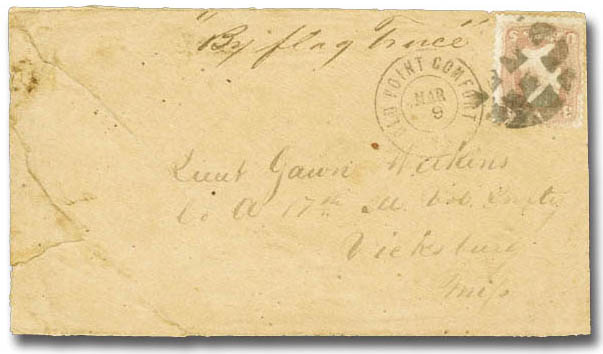 "By flag Truce"
OLD POINT COMFORT
MAR
9
Lieut Gawn Wilkins
Co A 17th Vol.
Vicksburg
Miss